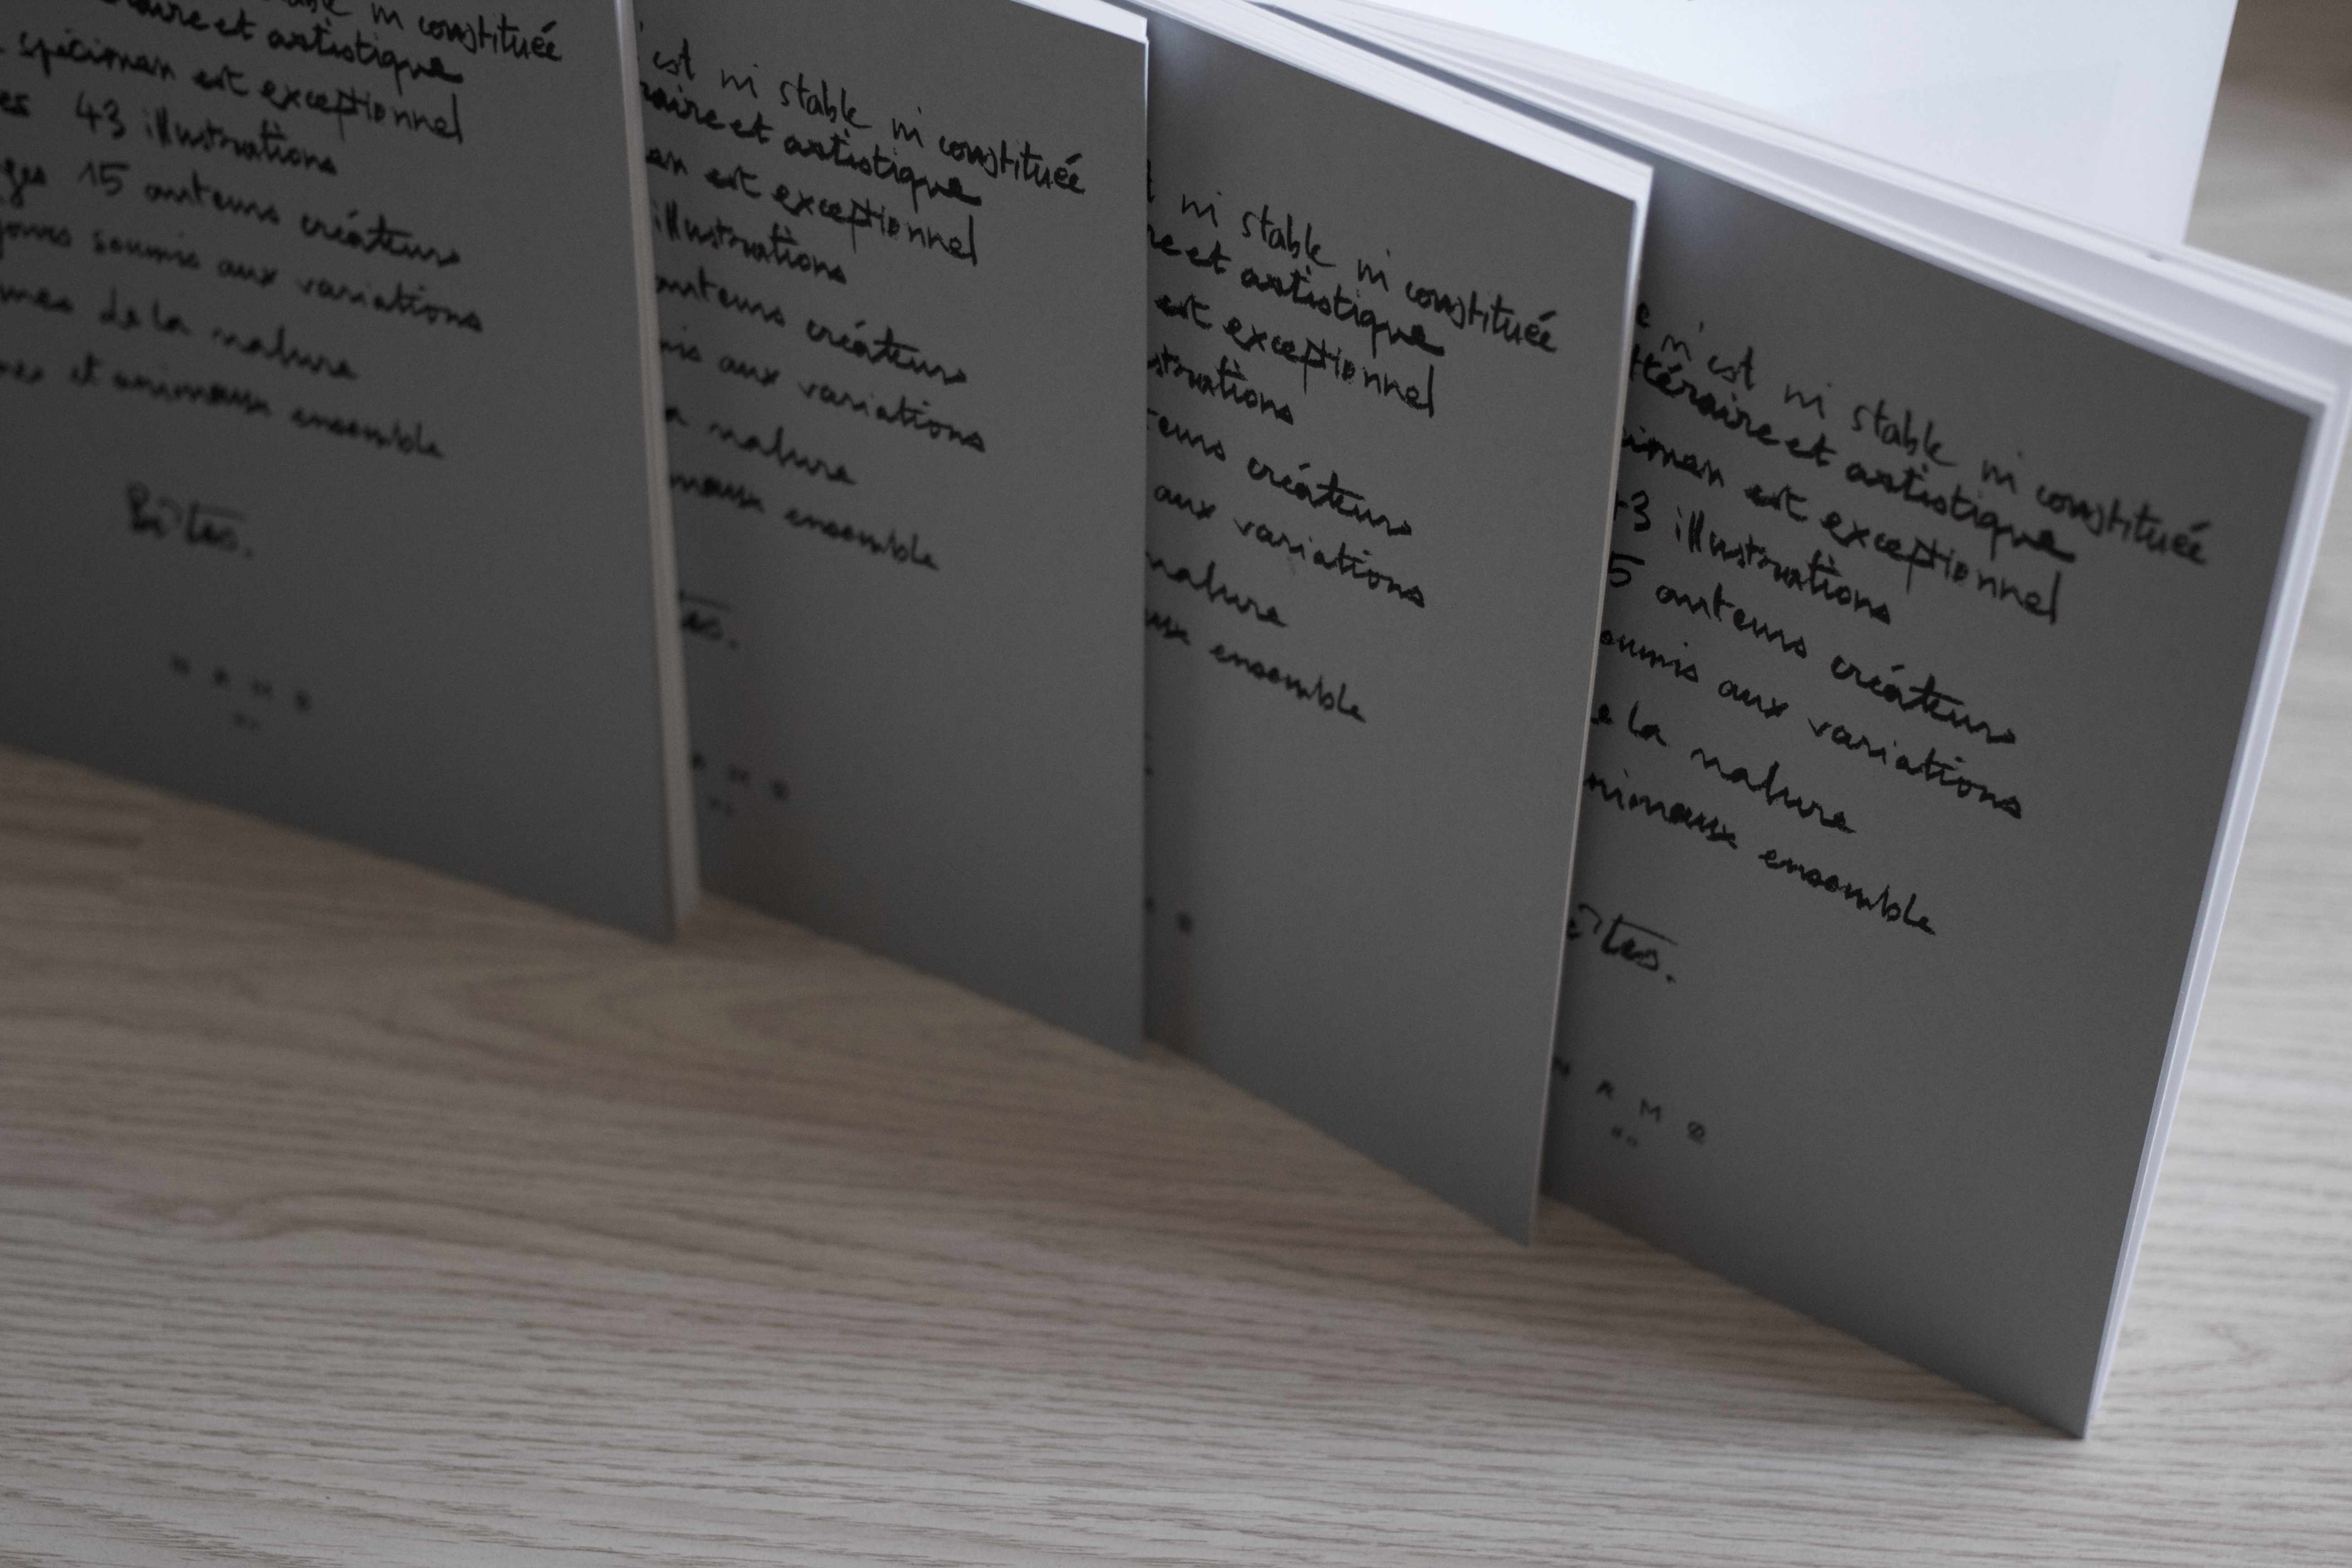 ni constituée
et artistique
spécimen est exceptionnel
43 illustrations
15 auteurs créateurs
soumis aux variations
de la nature
et animaux ensemble
Bêtes.
est ni stable ni constituée
et artistique
est exceptionnel
illustrations
auteurs créateurs
aux variations
nature
ensemble
ni stable ni constituée
et artistique
est exceptionnel
créateurs
aux variations
nature
ensemble
n'est ni stable ni constituée
et artistique
est exceptionnel
illustrations
auteurs créateurs
aux variations
la nature
ensemble